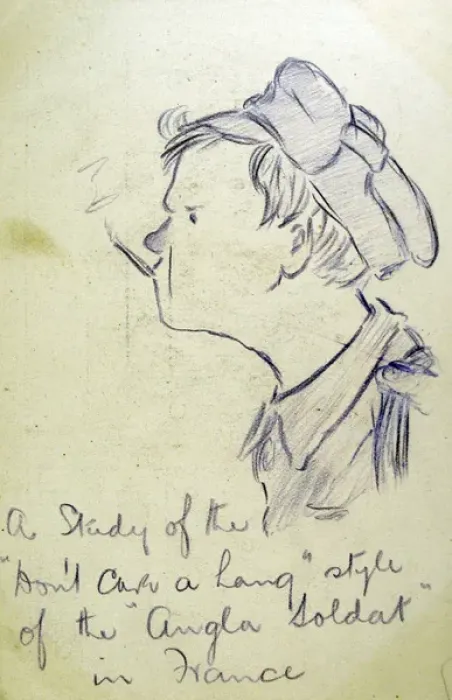 A Study of the
"Don't Care a hang" style
of the "Angla Soldat"
in France